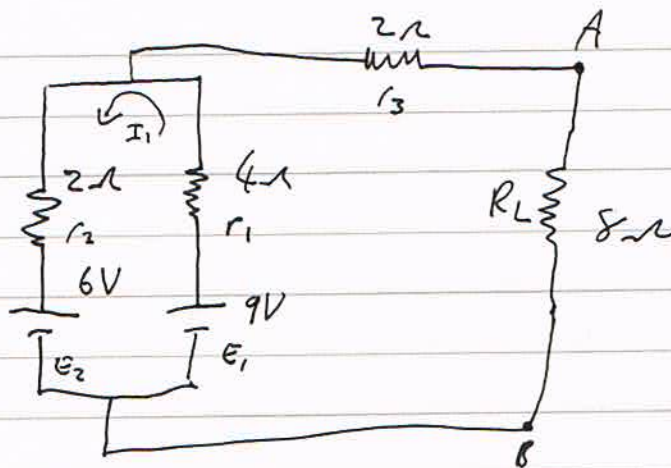 2Ω
A
r3
I1
2Ω
4Ω
r2
r1
RL
8Ω
6V
9V
E2
E1
B